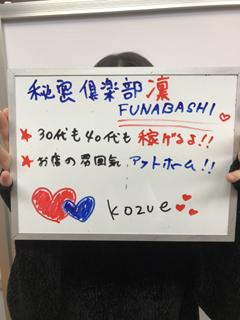 秘密倶楽部 凛
FUNABASHI
★30代も40代も稼げるよ!!
★お店の雰囲気、アットホーム!!
kozue